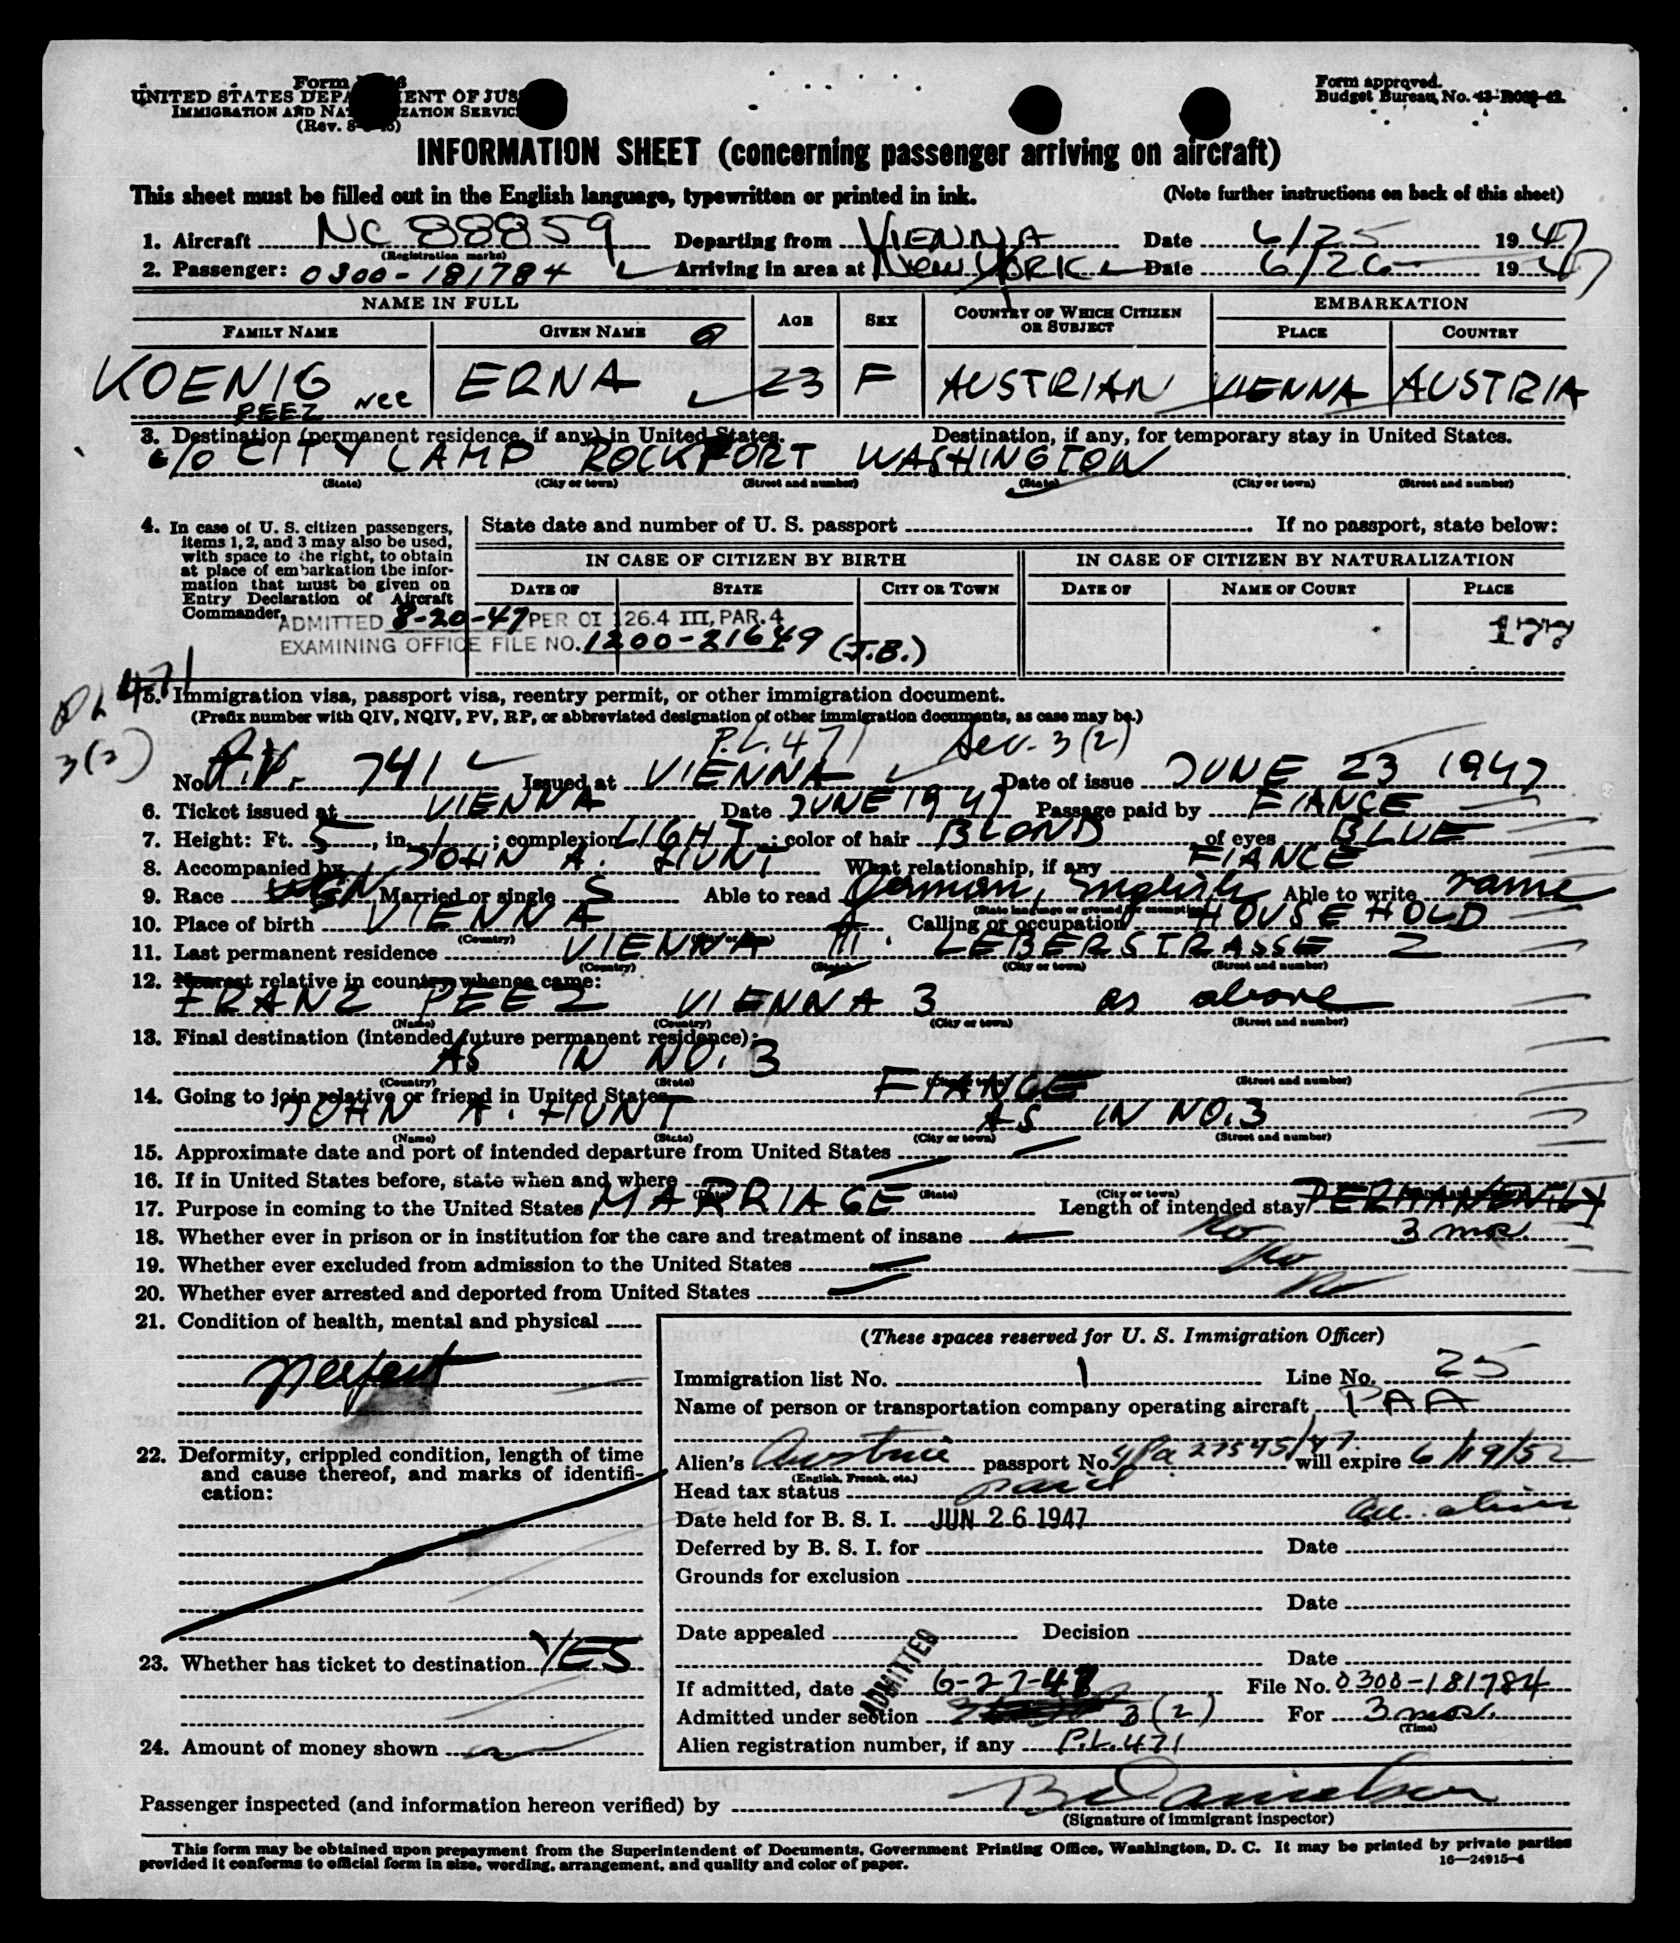 Form
UNITED STATES DEPARTMENT OF JUSTICE
IMMIGRATION AND NATURALIZATION SERVICE
(Rev. 8-
Form approved.
Budget Bureau No.
INFORMATION SHEET (concerning passenger arriving on aircraft)
This sheet must be filled out in the English language, typewritten or printed in ink. (Note further instructions on back of this sheet)
1. Aircraft NC 88859 Departing from VIENNA Date 6/25 1947
(Registration marks)
2. Passenger: 0300-181784 Arriving in area at NEW YORK Date 6/26 1947
NAME IN FULL AGE SEX COUNTRY OF WHICH CITIZEN OR SUBJECT EMBARKATION
FAMILY NAME GIVEN NAME PLACE COUNTRY
KOENIG nee PEEZ ERNA 23 F AUSTRIAN VIENNA AUSTRIA
3. Destination (permanent residence, if any) in United States. Destination, if any, for temporary stay in United States.
c/o CITY CAMP ROCKPORT WASHINGTON
(State) (City or town) (Street and number) (State) (City or town) (Street and number)
4. In case of U. S. citizen passengers, items 1, 2, and 3 may also be used, with space to the right, to obtain at place of embarkation the information that must be given on Entry Declaration of Aircraft Commander.
State date and number of U. S. passport If no passport, state below:
IN CASE OF CITIZEN BY BIRTH IN CASE OF CITIZEN BY NATURALIZATION
DATE OF STATE CITY OR TOWN DATE OF NAME OF COURT PLACE
ADMITTED 8-20-47 PER OI 126.4 III, PAR. 4
EXAMINING OFFICE FILE NO. 1200-21649 (J.B.)
177
PL 471
3(2)
5. Immigration visa, passport visa, reentry permit, or other immigration document.
(Prefix number with QIV, NQIV, PV, RP, or abbreviated designation of other immigration documents, as case may be.)
P.L. 471 Sec. 3(2)
No. P.V. 741 Issued at VIENNA Date of issue JUNE 23 1947
6. Ticket issued at VIENNA Date JUNE 1947 Passage paid by FIANCE
7. Height: Ft. 5, in. 1; complexion LIGHT; color of hair BLOND of eyes BLUE
8. Accompanied by JOHN A. HUNT What relationship, if any FIANCE
9. Race Married or single S Able to read German, English Able to write same
(State language or ground for exemption)
10. Place of birth VIENNA A Calling or occupation HOUSEHOLD
(Country)
11. Last permanent residence VIENNA III. LEBERSTRASSE 2
(Country) (State) (City or town) (Street and number)
12. Nearest relative in country whence came:
FRANZ PEEZ VIENNA 3 as above
(Name) (Country) (City or town) (Street and number)
13. Final destination (intended future permanent residence):
AS IN NO. 3
(Country) (State) (City or town) (Street and number)
14. Going to join relative or friend in United States FIANCE
JOHN A. HUNT AS IN NO. 3
(Name) (State) (City or town) (Street and number)
15. Approximate date and port of intended departure from United States
16. If in United States before, state when and where
(State) (City or town)
17. Purpose in coming to the United States MARRIAGE Length of intended stay PERMANENTLY
3 mos.
18. Whether ever in prison or in institution for the care and treatment of insane No
19. Whether ever excluded from admission to the United States No
20. Whether ever arrested and deported from United States No
21. Condition of health, mental and physical
perfect
22. Deformity, crippled condition, length of time and cause thereof, and marks of identification:
23. Whether has ticket to destination YES
24. Amount of money shown
(These spaces reserved for U. S. Immigration Officer)
Immigration list No. 1 Line No. 25
Name of person or transportation company operating aircraft PAA
Alien's Austria passport No. 4Pa 27545/47 will expire 6/19/52
(English, French, etc.)
Head tax status paid
Date held for B. S. I. JUN 26 1947
Deferred by B. S. I. for Date
Grounds for exclusion
Date
Date appealed Decision
Date
ADMITTED
If admitted, date 6-27-47 File No. 0300-181784
Admitted under section 3(2) For 3 mos.
(Time)
Alien registration number, if any P.L. 471
Passenger inspected (and information hereon verified) by
(Signature of immigrant inspector)
This form may be obtained upon prepayment from the Superintendent of Documents, Government Printing Office, Washington, D. C. It may be printed by private parties
provided it conforms to official form in size, wording, arrangement, and quality and color of paper.
16—24915-4